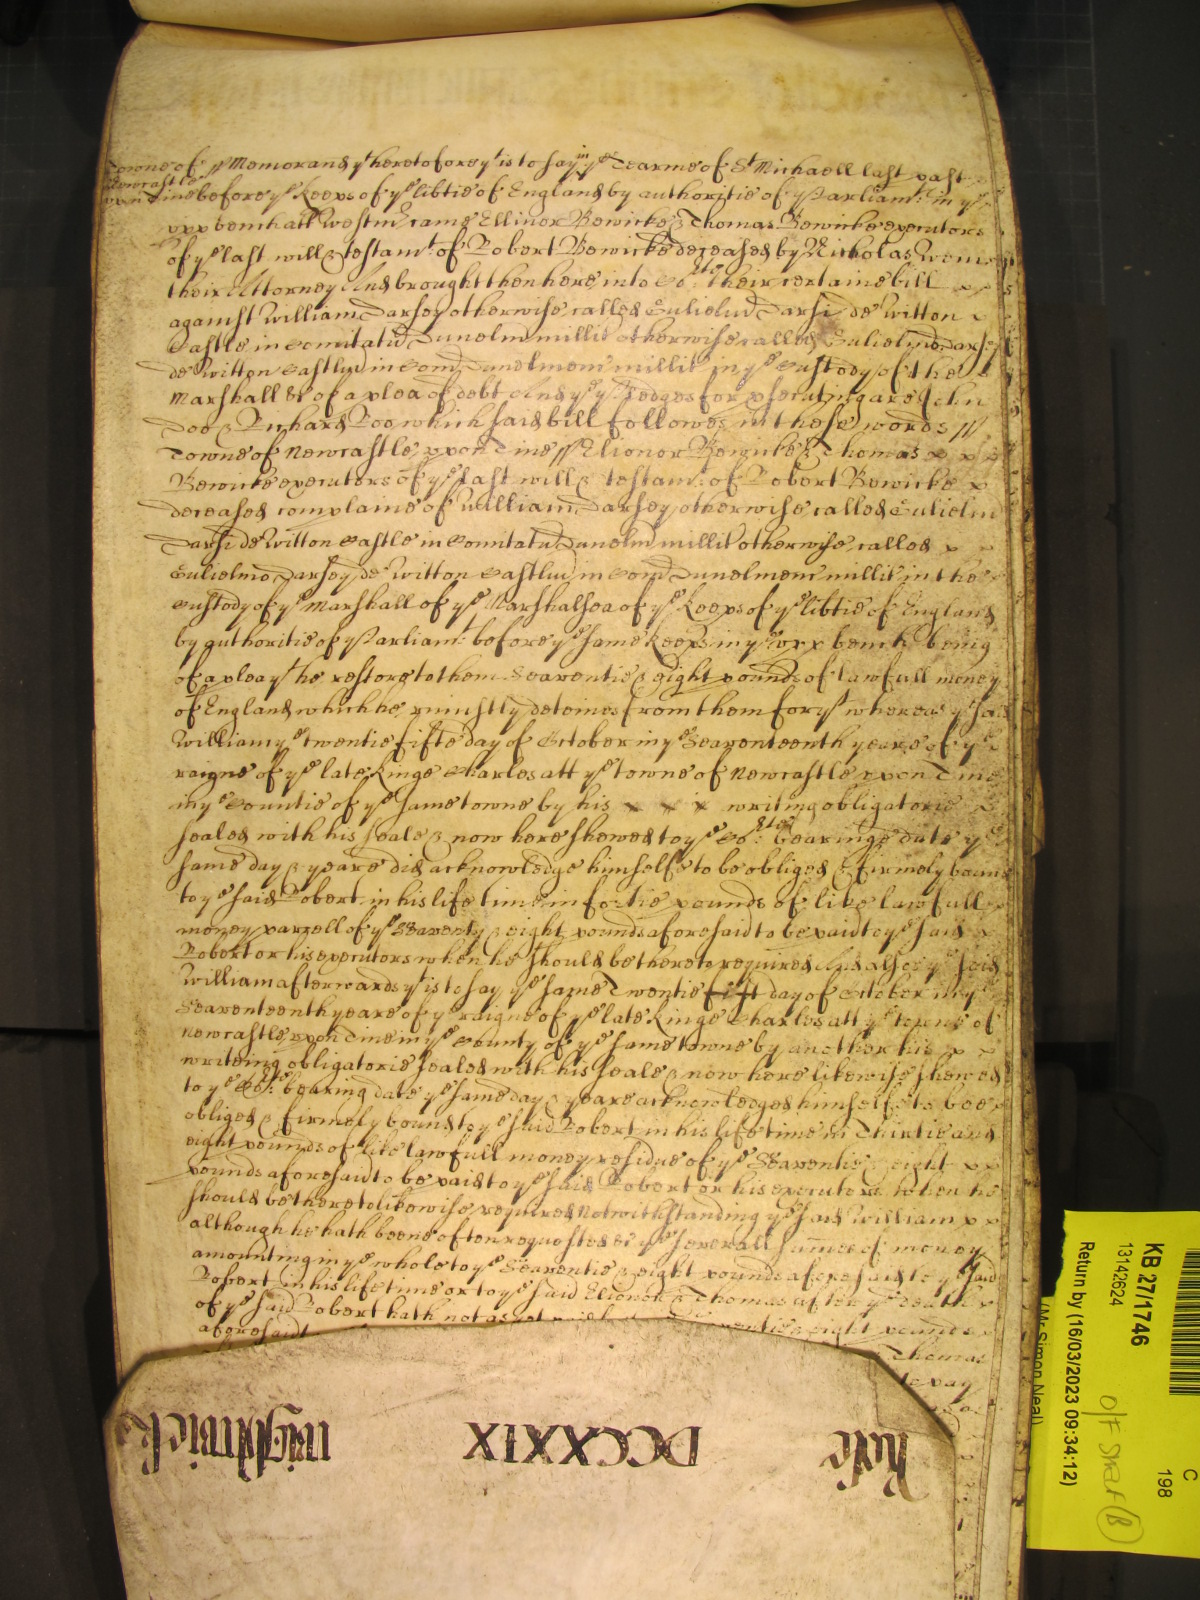 Towne of
Newcastle
upon Tine
ss Memorand yt heretofore yt is to say in ye Tearme of St Michaell last past
before ye Keeps of ye libtie of England by authoritie of ye Parliamt in ye
upp bench att Westmr came Ellinor Bewicke & Thomas Bewicke executors
of ye last will & testamt of Robert Bewicke deceased by Nicholas
their Attorney And brought then here into Co:rte their certaine bill x x
against William Darsey otherwise called Gulielm Darsi de Witton x
Castle in Comitatu Dunelm millit otherwise called Gulielmo Darsey
de Witton Castlu in Com Dunelmem millit in ye Custody of the
Marshall &c of a plea of debt And ye pledges for psecuting are John
Doo & Richard Roo which said bill followes in these words ss
Towne of Newcastle upon Tine ss Elionor Bewicke & Thomas x x x
Bewicke executors of ye last will & testamt of Robert Bewicke x
deceased complaine of William Darsey otherwise called Gulielm
Darsi de Witton Castle in Comitatu Dunelm millit otherwise called x x
Gulielmo Darsey de Witton Castlu in Com Dunelmem millit in the
custody of ye Marshall of ye Marshalsea of ye Keeps of ye libtie of England
by authoritie of ye Parliamt before ye same Keeps in ye upp bench being
of a plea yt he restore to them Seaventie & eight pounds of lawfull money
of England which he uniustly deteines from them for yt whereas ye said
William ye twentie fifte day of October in ye Seaventeenth yeare of ye
raigne of ye late Kinge Charles att ye towne of Newcastle upon Tine
in ye Countie of ye same towne by his x x x writing obligatorie x
sealed with his seale & now here shewed to ye Co:rte bearinge date ye
same day & yeare did acknowledge himselfe to be obliged & firmely bound
to ye said Robert in his life time in fortie pounds of like lawfull
money parcell of ye Seaventy & eight pounds aforesaid to be paid to ye said x
Robert or his executors when he should be thereto required And also ye said
William afterwards yt is to say ye same Twentie fift day of October in ye
Seaventeenth yeare of ye raigne of ye late Kinge Charles att ye towne of
Newcastle upon Tine in ye County of ye same towne by another his x x
writeing obligatorie sealed with his seale & now here likewise shewed
to ye Co:rte bearing date ye same day & yeare acknowledged himselfe to bee
obliged & firmely bound to ye said Robert in his life time in Thirtie and
eight pounds of like lawfull money residue of ye Seaventie & eight x x
pounds aforesaid to be paid to ye said Robert or his executors when he
should be thereto likewise required Notwithstanding ye said William x x
although he hath beene often requested ye severall summes of money
amounting in ye whole to ye Seaventie & eight pounds aforesaid to ye said
Robert in his life time or to ye said Elionor & Thomas after ye death x
of ye said Robert hath not as yet paid eight pounds x
aforesaid Thomas
to pay
Rot'o DCCXXIX Wightwick
C
198
KB 27/1746
13142624
Return by (16/03/2023 09:34:12)
(Mr Simon Neal)